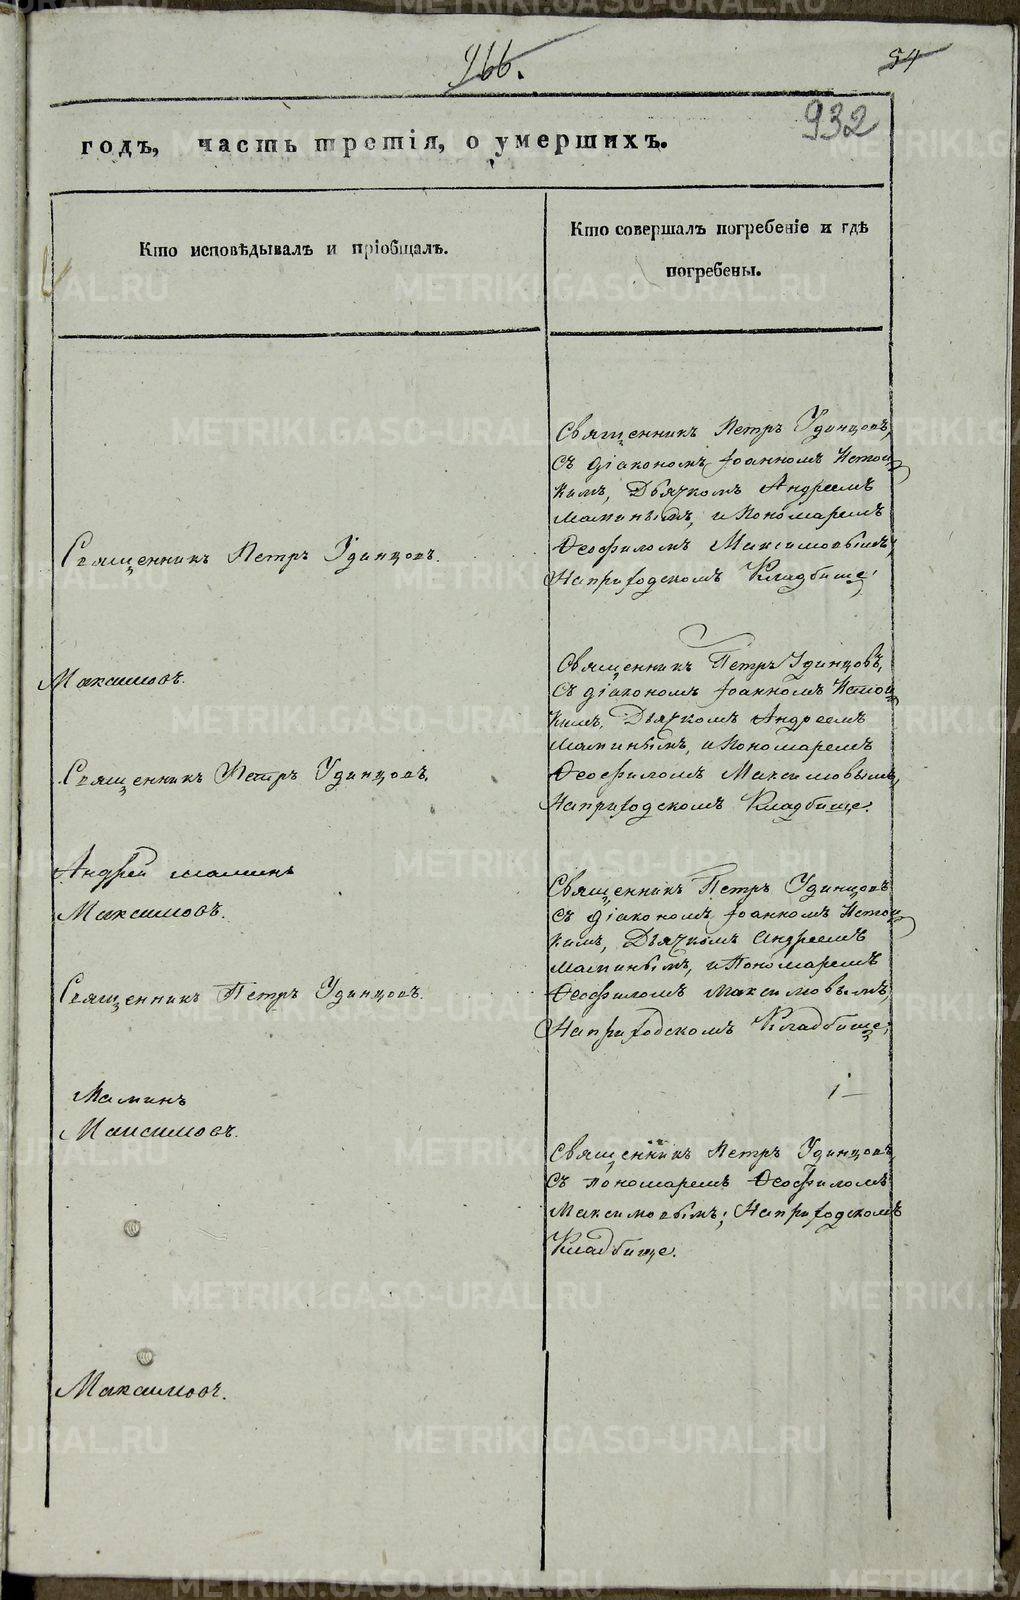 966.
54
932
годъ, часть третія, о умершихъ.
Кто исповѣдывалъ и пріобщалъ.
Кто совершалъ погребеніе и гдѣ
погребены.
Священникъ Петръ Удинцовъ,
съ діакономъ Іоанномъ Истоц
кимъ, Дьячкомъ Андреемъ
Маминымъ, и Пономаремъ
Ѳеофиломъ Максимовымъ,
На приходскомъ Кладбище,
Священникъ Петръ Удинцовъ.
Максимовъ.
Священникъ Петръ Удинцовъ,
съ діакономъ Іоанномъ Истоц
кимъ, Дьячкомъ Андреемъ
Маминымъ, и Пономаремъ
Ѳеофиломъ Максимовымъ,
На приходскомъ Кладбище.
Священникъ Петръ Удинцовъ,
Андрей Маминъ
Максимовъ.
Священникъ Петръ Удинцовъ
съ діакономъ Іоанномъ Истоц
кимъ, Дьячкомъ Андреемъ
Маминымъ, и Пономаремъ
Ѳеофиломъ Максимовымъ,
На приходскомъ Кладбище,
Священникъ Петръ Удинцовъ.
Маминъ
Максимовъ.
Священникъ Петръ Удинцовъ,
съ пономаремъ Ѳеофиломъ
Максимовымъ; На приходскомъ
Кладбище.
Максимовъ.
METRIKI.GASO-URAL.RU